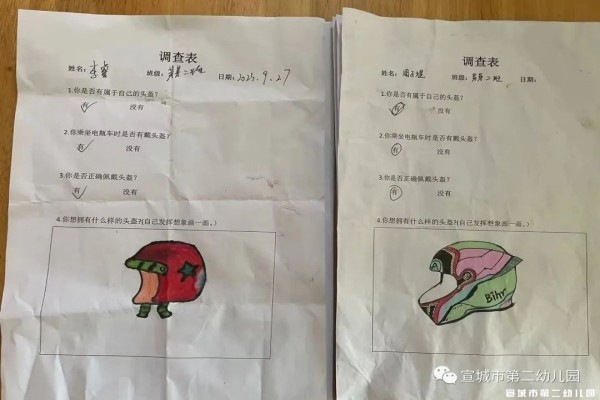 调查表
姓名：李睿 班级：第二 日期：2023.9.27
1.你是否有属于自己的头盔？
有 没有
2.你乘坐电瓶车时是否有戴头盔？
有 没有
3.你是否正确佩戴头盔？
有 没有
4.你想拥有什么样的头盔?(自己发挥想象画一画。)
调查表
姓名： 班级：第二 日期：
1.你是否有属于自己的头盔？
有 没有
2.你乘坐电瓶车时是否有戴头盔？
有 没有
3.你是否正确佩戴头盔？
有 没有
4.你想拥有什么样的头盔?(自己发挥想象画一画。)
Bihr
宣城市第二幼儿园
宣城市第二幼儿园